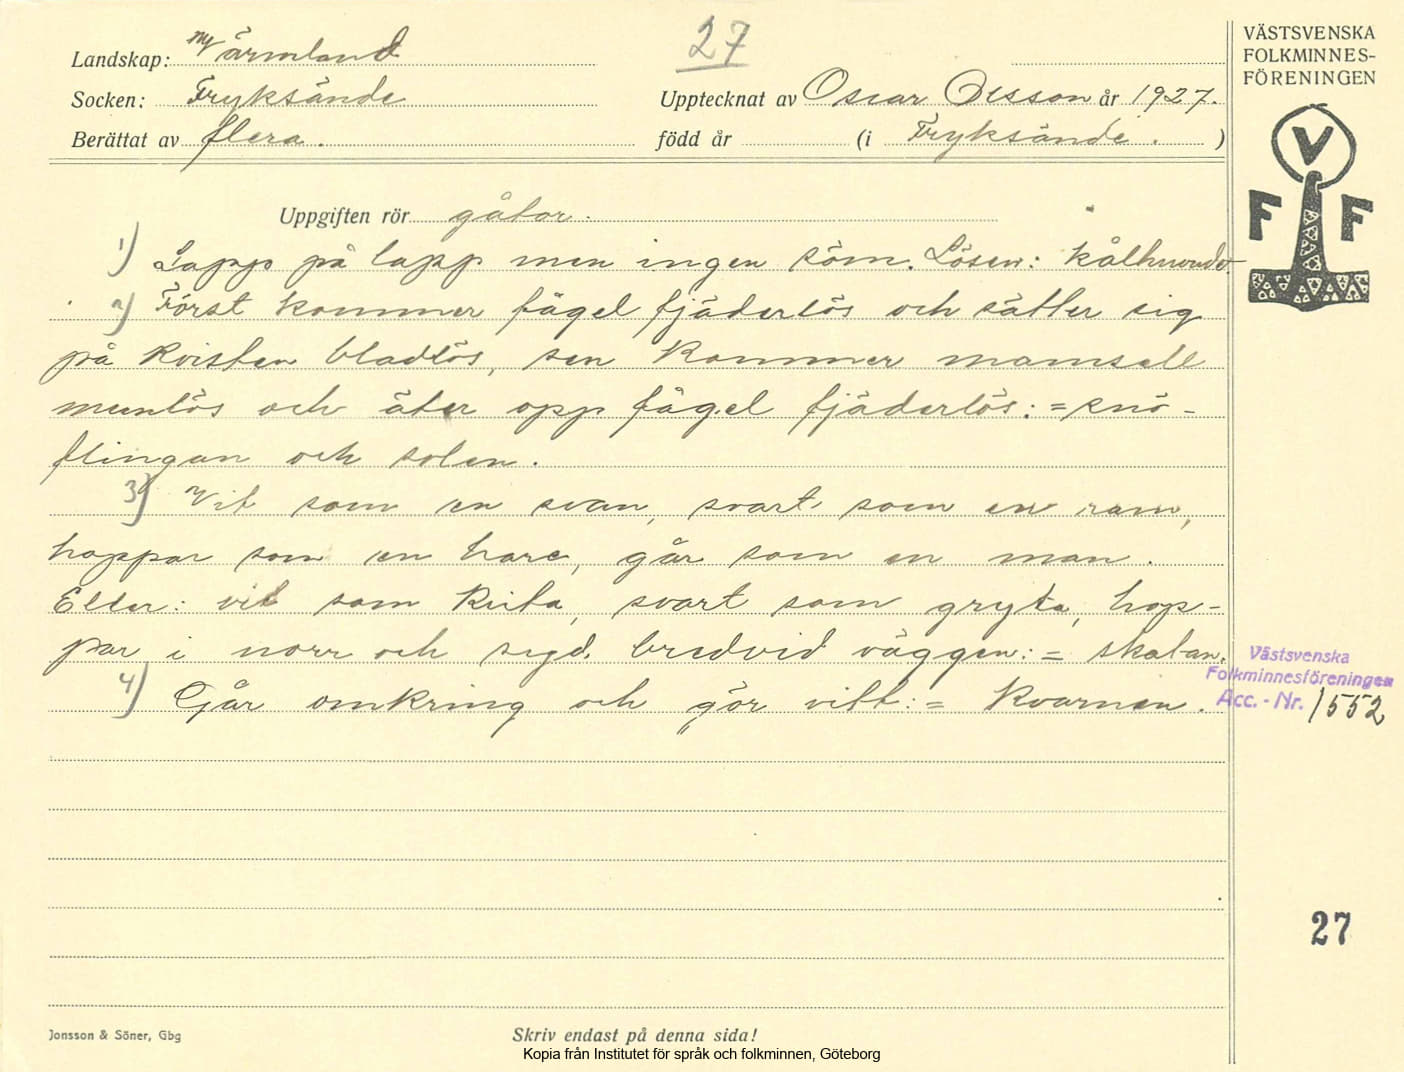 27
Landskap: Värmland
Socken: Fryksände
Upptecknat av Oscar Olsson år 1927.
Berättat av flera.
född år (i Fryksände. )
VÄSTSVENSKA
FOLKMINNES-
FÖRENINGEN
V
F F
Uppgiften rör gåtor.
1) Lapp på lapp men ingen söm. Lösen: kålhuvudet
2) Först kommer fågel fjäderlös och sätter sig
på kvisten bladlös, sen kommer mamsell
munlös och äter opp fågel fjäderlös: = snö-
flingan och solen.
3) Vit som en svan, svart som en ram,
hoppar som en hare, går som en man.
Eller: vit som krita, svart som gryta, hop-
par i norr och syd, bredvid väggen: = skatan.
4) Går omkring och gör vitt: = kvarnen.
Västsvenska
Folkminnesföreningen
Acc. - Nr. 1552
27
Jonsson & Söner, Gbg
Skriv endast på denna sida!
Kopia från Institutet för språk och folkminnen, Göteborg